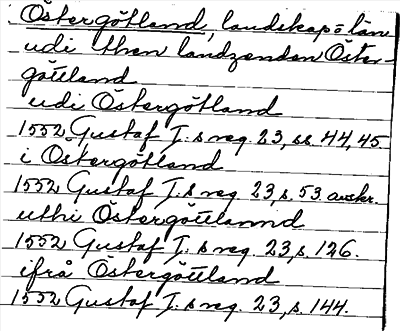 Östergötland, landskap o län
udi then landzenden Öster-
göttland
udi Östergötland
1552 Gustaf I:s reg. 23, ss. 44, 45
i Östergötland
1552 Gustaf I:s reg. 23, s. 53. avskr.
uthi Östergöttlannd
1552 Gustaf I:s reg. 23, s. 126.
ifrå Östergöttland
1552 Gustaf I:s reg. 23, s. 144.